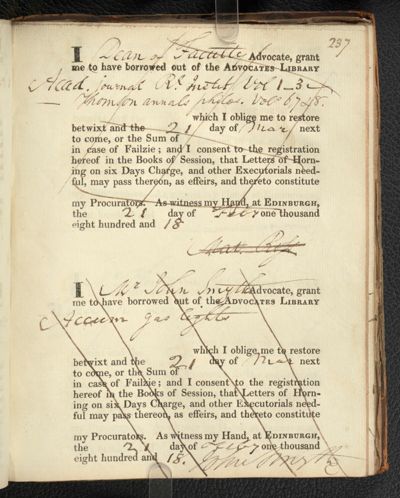 237
I Dean of Faculty Advocate, grant
me to have borrowed out of the ADVOCATES LIBRARY
Acad. journal Rl. Instit. Vol 1_3
Thomson annals philos. Vols 6 7 & 8.
which I oblige me to restore
betwixt and the 21 day of May next
to come, or the Sum of
in case of Failzie; and I consent to the registration
hereof in the Books of Session, that Letters of Horn-
ing on six Days Charge, and other Executorials need-
ful, may pass thereon, as effeirs, and thereto constitute
my Procurators. As witness my Hand, at EDINBURGH,
the 21 day of one thousand
eight hundred and 18
Mat. Ross
I Mr John Smyth Advocate, grant
me to have borrowed out of the ADVOCATES LIBRARY
Accum gas lights
which I oblige me to restore
betwixt and the 21 day of Mar next
to come, or the Sum of
in case of Failzie; and I consent to the registration
hereof in the Books of Session, that Letters of Horn-
ing on six Days Charge, and other Executorials need-
ful may pass thereon, as effeirs, and thereto constitute
my Procurators. As witness my Hand, at EDINBURGH,
the 21 day of one thousand
eight hundred and 18. John Smyth